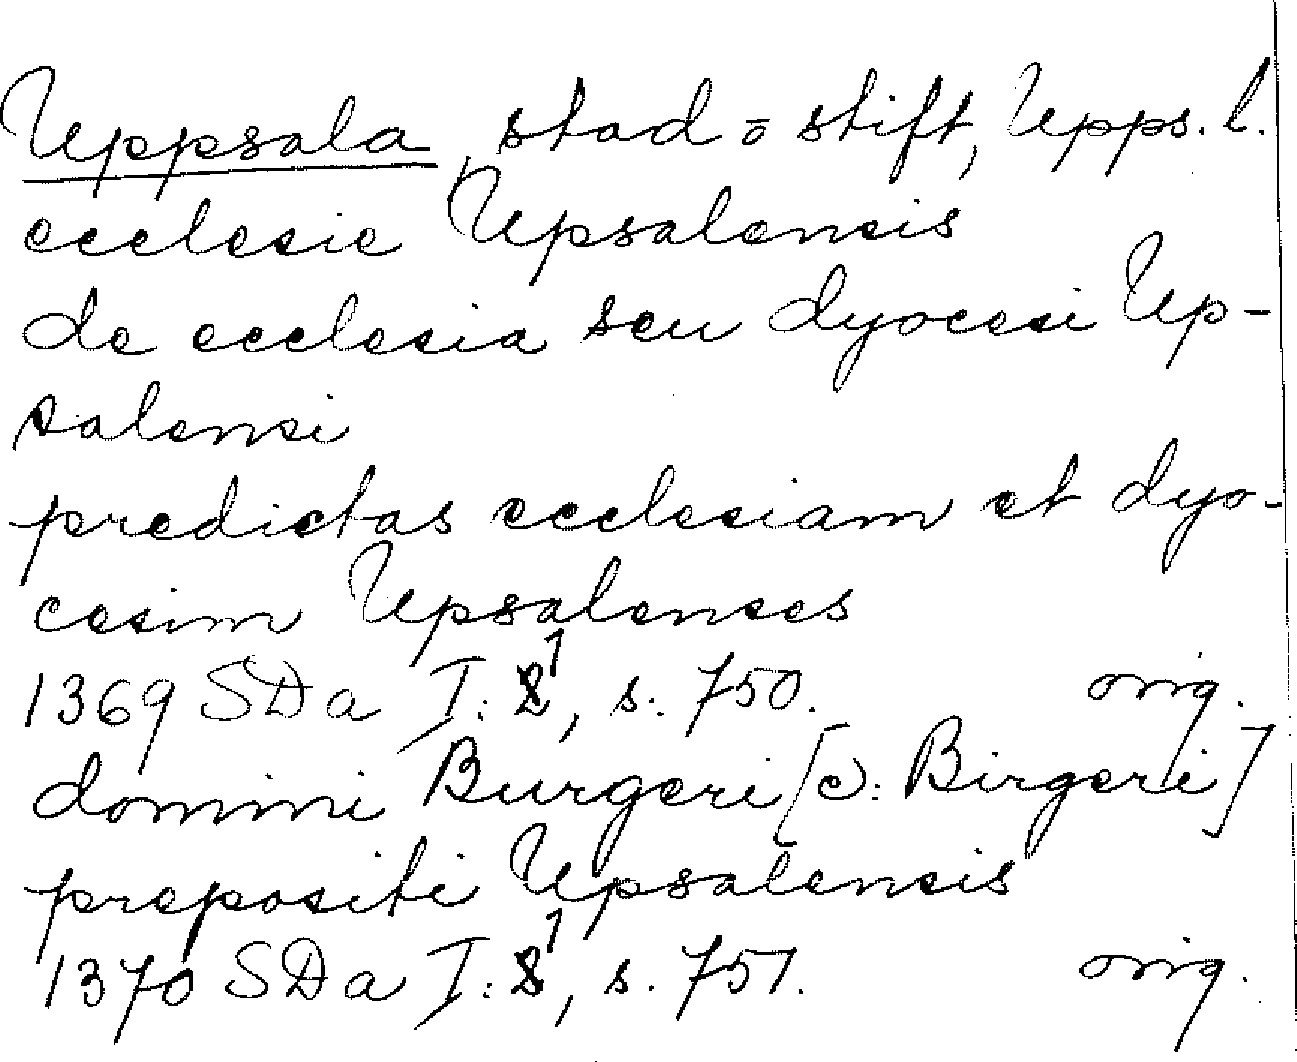 Uppsala, stad o stift, Upps. l.
ecclesie Upsalensis
de ecclesia seu dyocesi Up-
salensi
predictas ecclesiam et dyo-
cesim Upsalenses
1369 SDa I: 1, s. 750. orig.
domini Burgeri [ɔ: Birgeri]
prepositi Upsalensis
1370 SDa I: 1, s. 751. orig.